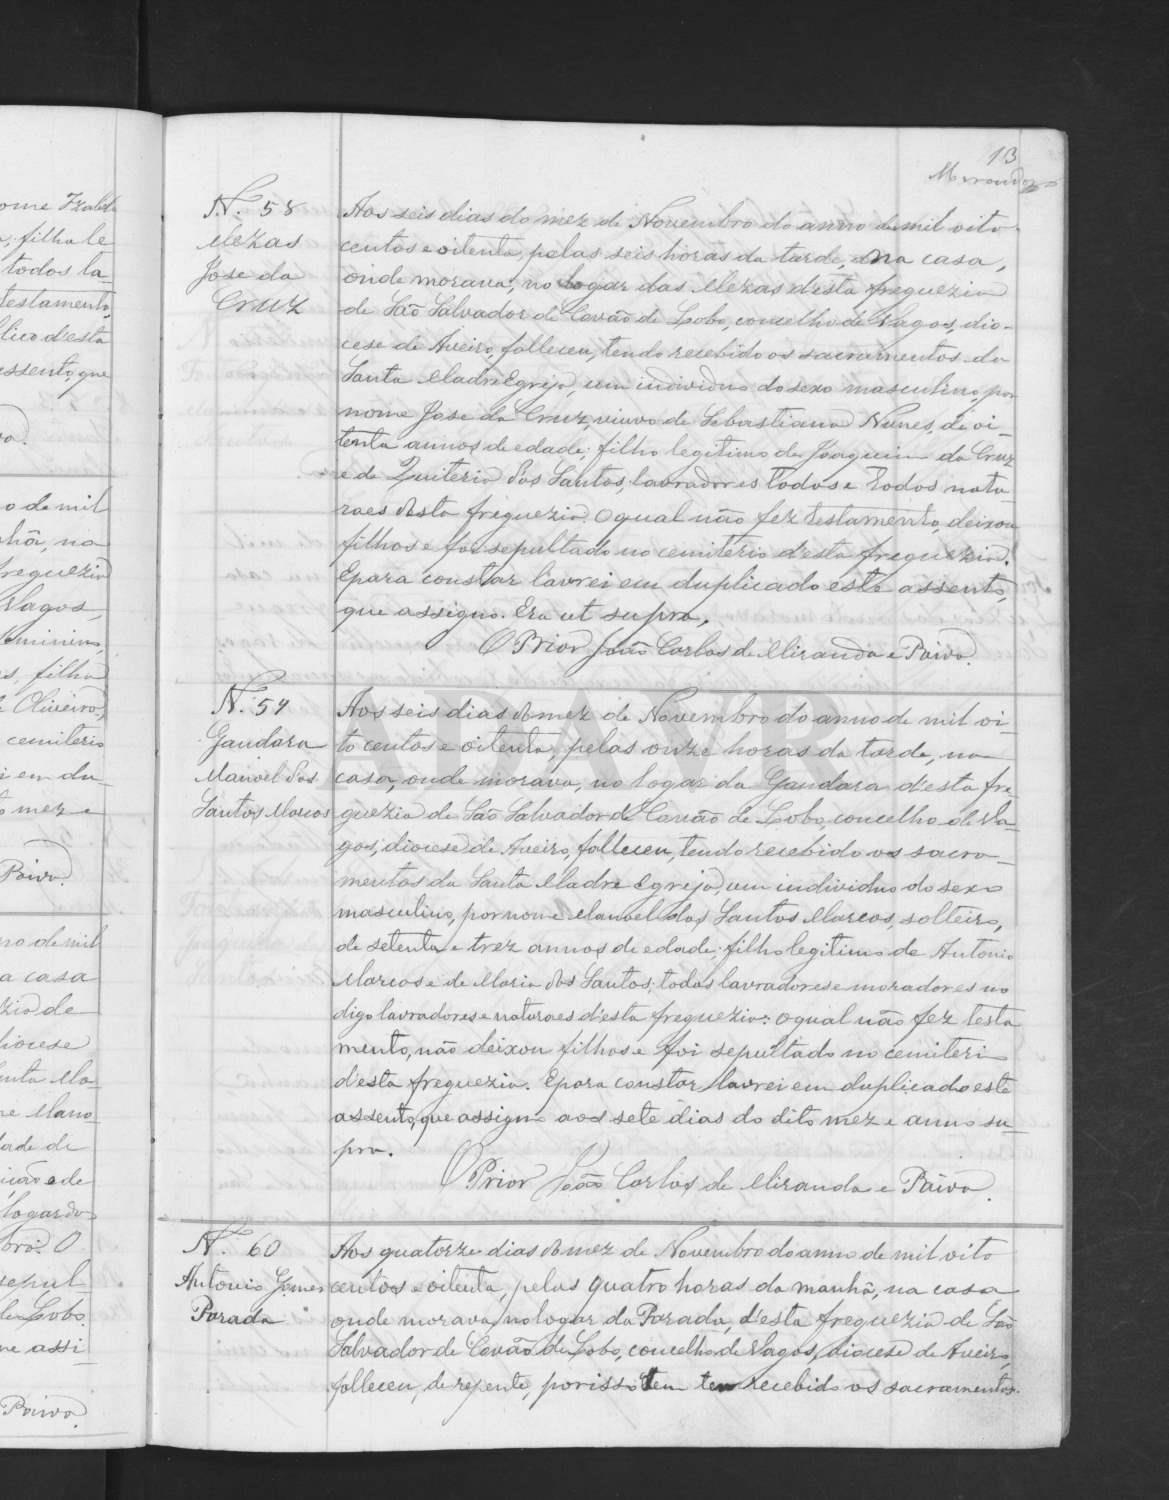 ome Izabel
, filha le
todos la-
testamento,
lico d'esta
assento, que
o de mil
nhã, na
freguezia
Vagos,
feminino,
s, filha
Oliveira,
cemiterio
em du-
mez e
Paiva.
no de mil
a casa
zia de
diocese
Santa Ma-
ne Mano-
dade de
e de
logar do
O
sepul-
de Lobo.
ne assi-
Paiva.
13
Miranda
N.º 58
Mezas
Jose da
Cruz
Aos seis dias do mez de Novembro do anno de mil oito
centos e oitenta, pelas seis horas da tarde, na casa,
onde morava, no logar das Mezas d'esta freguezia
de São Salvador de Covão de Lobo, concelho de Vagos, dio-
cese de Aveiro, falleceu, tendo recebido os sacramentos da
Santa Madre Egreja, um individuo do sexo masculino, por
nome Jose da Cruz, viuvo de Sebastiana Nunes, de oi-
tenta annos de edade, filho legitimo de Joaquim da Cruz
e de Quiteria dos Santos, lavradores todos e todos natu-
raes desta freguezia. O qual não fez testamento, deixou
filhos e foi sepultado no cemiterio d'esta freguezia.
E para constar lavrei em duplicado este assento,
que assigno. Era ut supra.
O Prior João Carlos de Miranda e Paiva.
N.º 59
Gandara
Manoel dos
Santos Marcos
Aos seis dias do mez de Novembro do anno de mil oi-
to centos e oitenta, pelas onze horas da tarde, na
casa, onde morava, no logar da Gandara d'esta fre
guezia de São Salvador de Covão de Lobo, concelho de Va-
gos, diocese de Aveiro, falleceu, tendo recebido os sacra-
mentos da Santa Madre Egreja, um individuo do sexo
masculino, por nome Manoel dos Santos Marcos, solteiro,
de setenta e trez annos de edade, filho legitimo de Antonio
Marcos e de Maria dos Santos, todos lavradores e moradores no
digo lavradores e naturaes d'esta freguezia: o qual não fez testa
mento, não deixou filhos e foi sepultado no cemiterio
d'esta freguezia. E para constar lavrei em duplicado este
assento, que assigno aos sete dias do dito mez e anno su-
pra.
O Prior João Carlos de Miranda e Paiva.
N.º 60
Antonio Gomes
Parada
Aos quatorze dias do mez de Novembro do anno de mil oito
centos e oitenta, pelas quatro horas da manhã, na casa
onde morava, no logar da Parada, d'esta freguezia de São
Salvador de Covão de Lobo, concelho de Vagos, diocese de Aveiro,
falleceu, de repente, por isso sem ter recebido os sacramentos
ADAVR